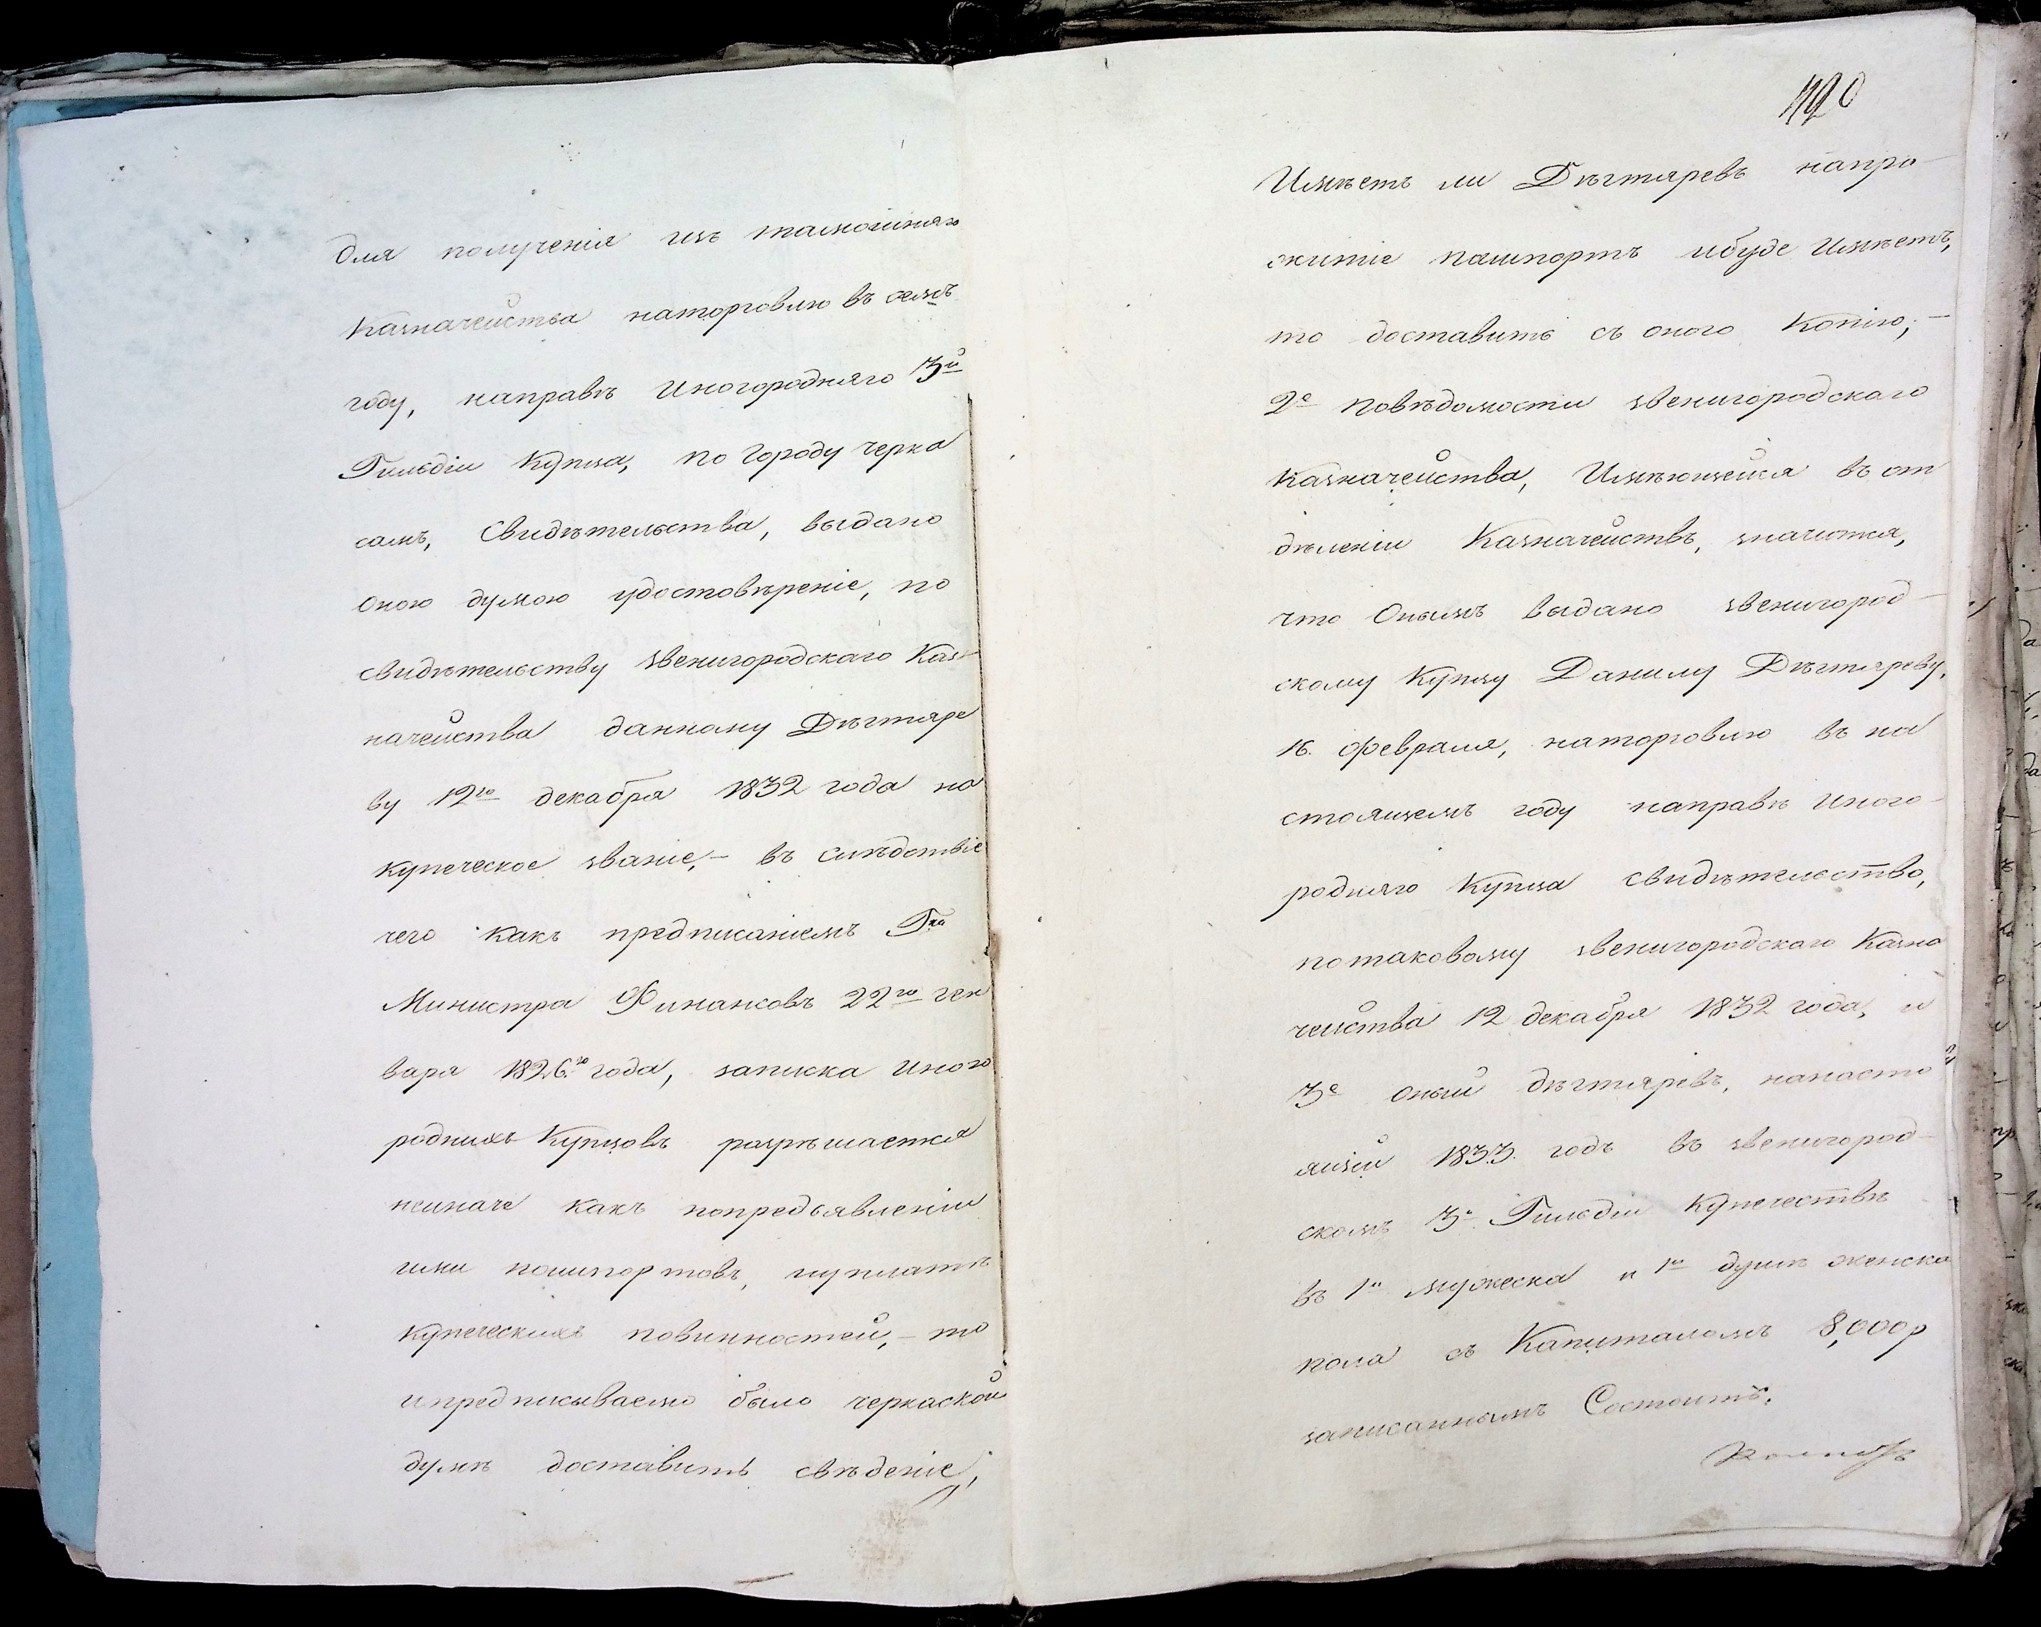 для полученія изъ тамошняго
Казначейства наторговлю въ семъ
году, направѣ Иногородняго 3й
Гильдіи Купца, по городу Черка
самъ, Свидѣтельства, выдано
Оною думою удостовѣреніе, по
свидѣтельству звенигородскаго Каз-
начейства данному Дѣгтяре
ву 12го декабря 1832 года на
купеческое званіе, – въ слѣдствіе
чего какъ предписаніемъ Гна
Министра Финансовъ 22го Ген
варя 1826го года, записка иного
родныхъ Купцовъ разрѣшается
неиначе какъ попредъявленіи
ими пашпортовъ, иуплатѣ
купеческихъ повинностей, – то
ипредписываемо было черкаской
думѣ доставить свѣденіе,
1120
Имѣетъ ли Дѣгтяревъ напро-
житіе пашпортъ ибуде Имѣетъ,
то доставить съ оного Копію; –
2е повѣдомости звенигородскаго
Казначейства, Имѣющейся въ от
дѣленіи Казначействъ, значится,
что Онымъ выдано звенигород-
скому Купцу Данилу Дѣгтяреву,
16. февраля, наторговлю въ на
стоящемъ году направѣ иного-
родняго Купца свидѣтельство,
потаковому звенигородскаго Казна
чейства 12 декабря 1832 года, и
3е оный дѣгтяревъ, нанасто
ящій 1833. годъ въ звенигород-
скомъ 3й Гильдіи Купечествѣ
въ 1й мужеска и 1й душѣ женска
пола съ Капиталомъ 8,000р
записаннымъ Состоитъ.